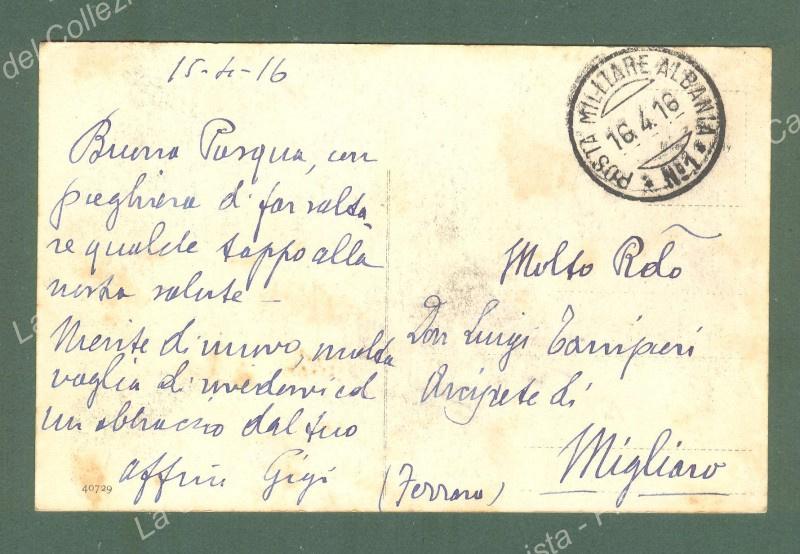 15-4-16
Buona Pasqua, con
preghiera di far salta
re qualche tappo alla
nostra salute -
Niente di nuovo, molta
voglia di rivedervi ed
un abbraccio dal tuo
Gigi
40729
POSTA MILITARE ALBANIA * N.1 *
16.4.16
Molto Rdo
Don Luigi Tampieri
Arciprete di
Migliaro
(Ferrara)